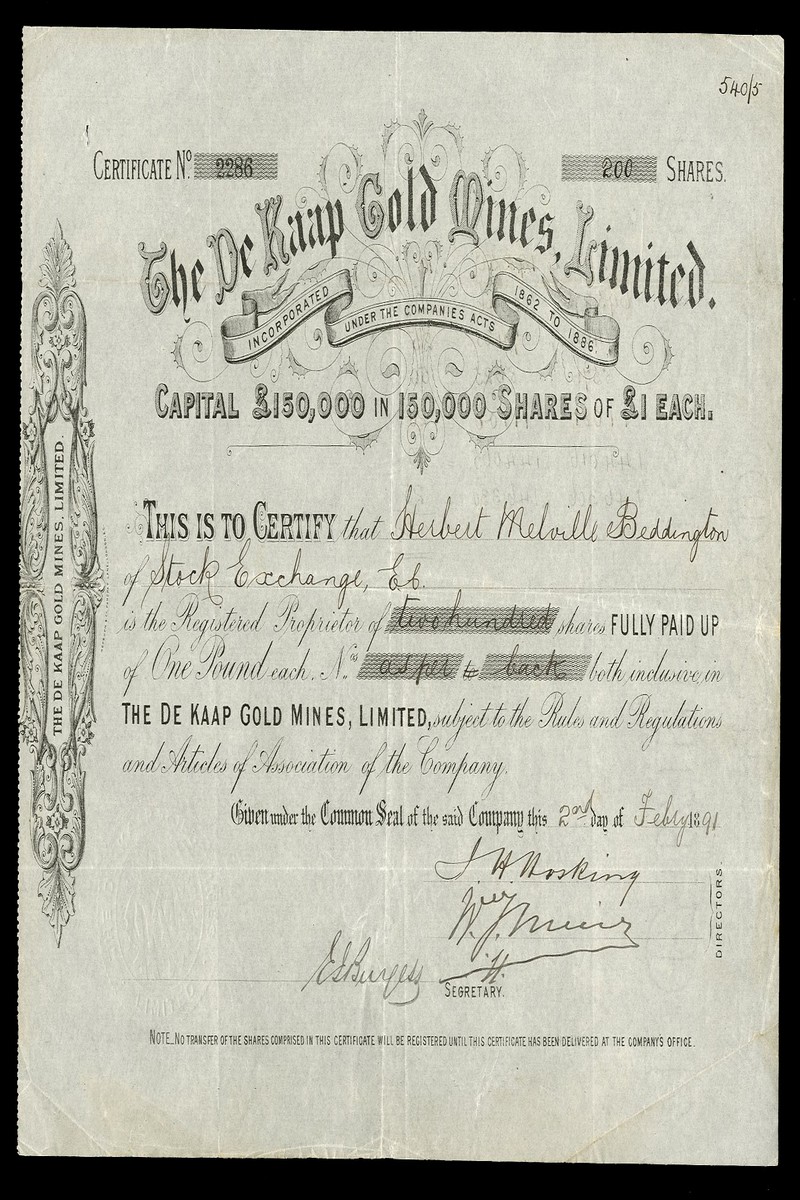 540/5
CERTIFICATE No. 2286
200 SHARES.
The De Kaap Gold Mines, Limited.
INCORPORATED UNDER THE COMPANIES ACTS 1862 TO 1886.
CAPITAL £150,000 IN 150,000 SHARES OF £1 EACH.
THE DE KAAP GOLD MINES, LIMITED.
THIS IS TO CERTIFY that Herbert Melville Beddington
of Stock Exchange, E.C.
is the Registered Proprietor of two hundred shares FULLY PAID UP
of One Pound each. Nos as per to back both inclusive, in
THE DE KAAP GOLD MINES, LIMITED, subject to the Rules and Regulations
and Articles of Association of the Company.
Given under the Common Seal of the said Company this 2nd day of Febry 1891
J. H. Hosking
W. J. Muir
DIRECTORS.
E S Burgess
SECRETARY.
NOTE_NO TRANSFER OF THE SHARES COMPRISED IN THIS CERTIFICATE WILL BE REGISTERED UNTIL THIS CERTIFICATE HAS BEEN DELIVERED AT THE COMPANY'S OFFICE.